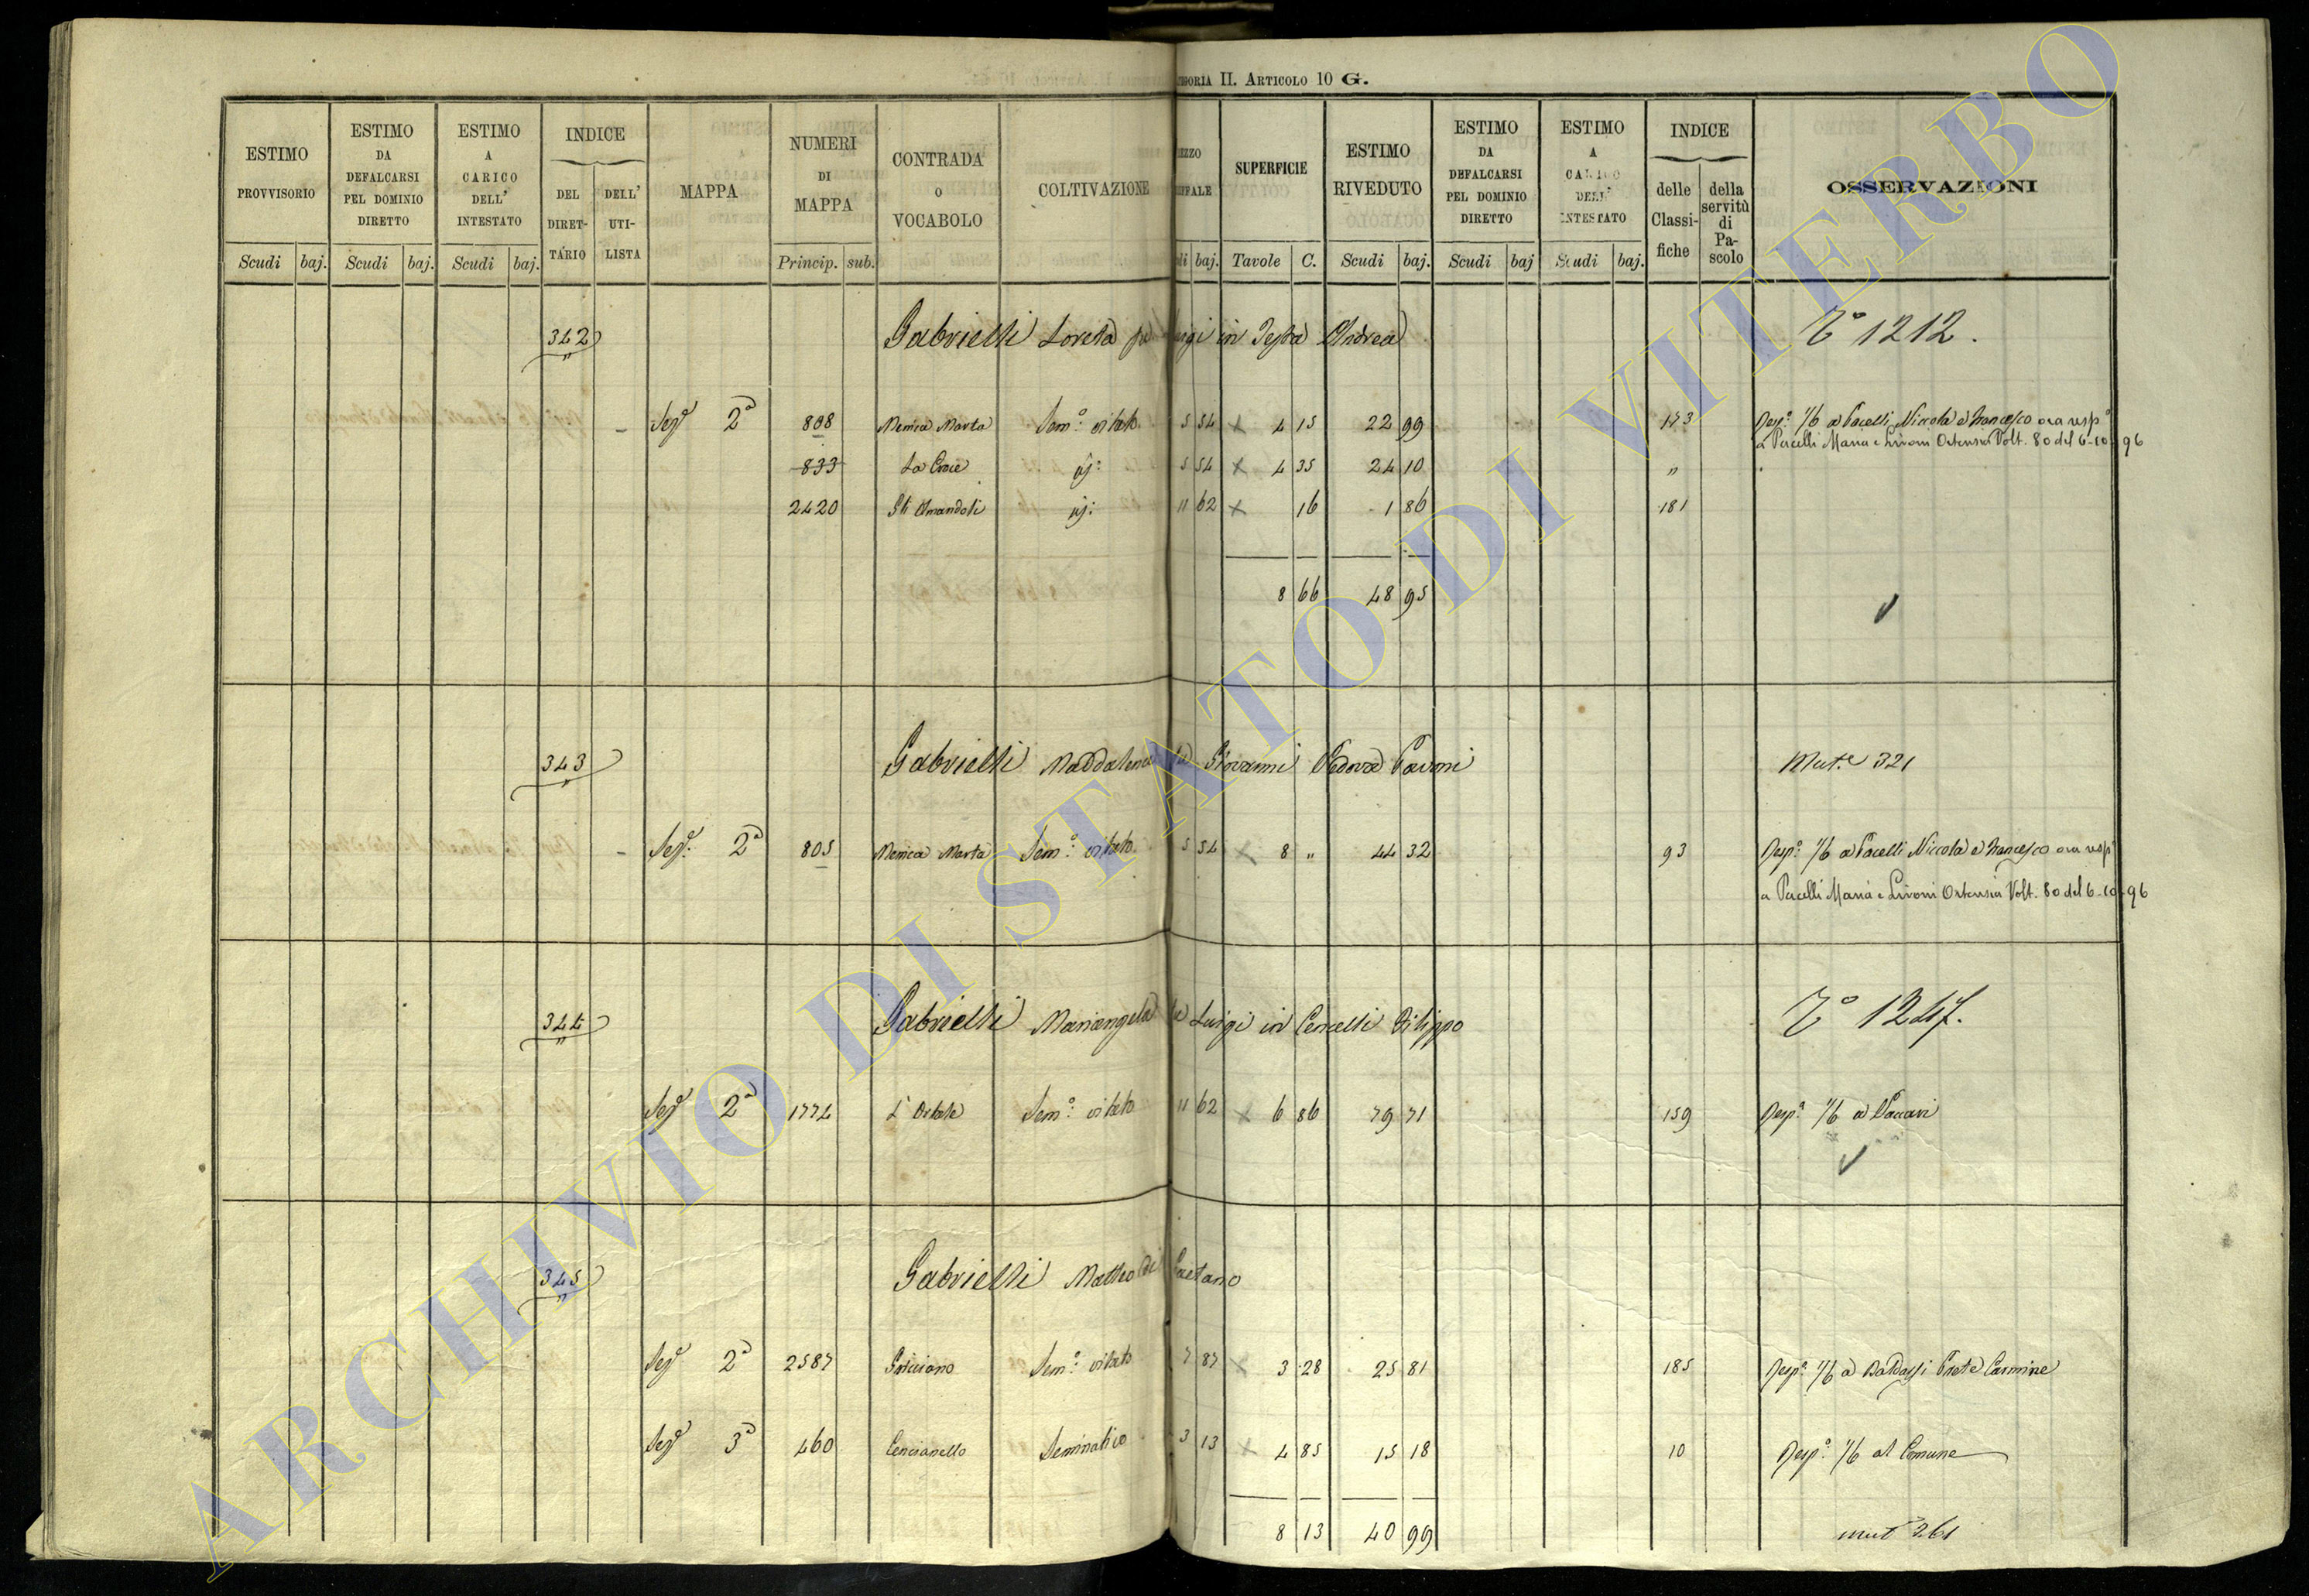 II. Articolo 10 G.
ESTIMO PROVVISORIO
ESTIMO DA DEFALCARSI PEL DOMINIO DIRETTO
ESTIMO A CARICO DELL' INTESTATO
INDICE
DEL DIRETTARIO
DELL' UTILISTA
MAPPA
NUMERI DI MAPPA
CONTRADA O VOCABOLO
COLTIVAZIONE
SUPERFICIE
ESTIMO RIVEDUTO
ESTIMO DA DEFALCARSI PEL DOMINIO DIRETTO
ESTIMO A CARICO DELL' INTESTATO
INDICE
delle Classifiche
della servitù di Pascolo
OSSERVAZIONI
Scudi baj. Scudi baj. Scudi baj. Princip. sub. baj. Tavole C. Scudi baj. Scudi baj Scudi baj.
342 Gabrielli Loreta in Testa Andrea 1212.
Sez.e 2a 808 Menica Marta Sem.o vitato 5 54 4 15 22 99 173 Resp.a 1/6 a Pacelli Niccola e Francesco ora resp.a
a Pacelli Maria e Livoni Ortensia Volt. 80 del 6-10-96
833 La Croce 5 54 4 35 24 10 "
2420 Sti Amandoli 11 62 16 1 86 181
8 66 48 95
343 Gabrielli Maddalena Giovanni Vedova Pavoni Mut.e 321
Sez.e 2a 805 Menica Marta Sem.o vitato 5 54 8 " 44 32 93 Resp.a 1/6 a Pacelli Niccola e Francesco ora resp.a
a Pacelli Maria e Livoni Ortensia Volt. 80 del 6-10-96
344 Gabrielli Mariangela Luigi in Cencelli Filippo 1247.
Sez.e 2a 1774 Sem.o vitato 11 62 6 86 79 71 159 Resp.a 1/6 a Vaccari
345 Gabrielli Matteo di Gaetano
Sez.e 2a 2587 Sem.o vitato 7 87 3 28 25 81 185 Resp.a 1/6 a Baldassi Prete Carmine
Sez.e 3a 460 Cencianello Seminativo 3 13 4 85 15 18 10 Resp.a 1/6 al Comune
8 13 40 99 mut 261
ARCHIVIO DI STATO DI VITERBO